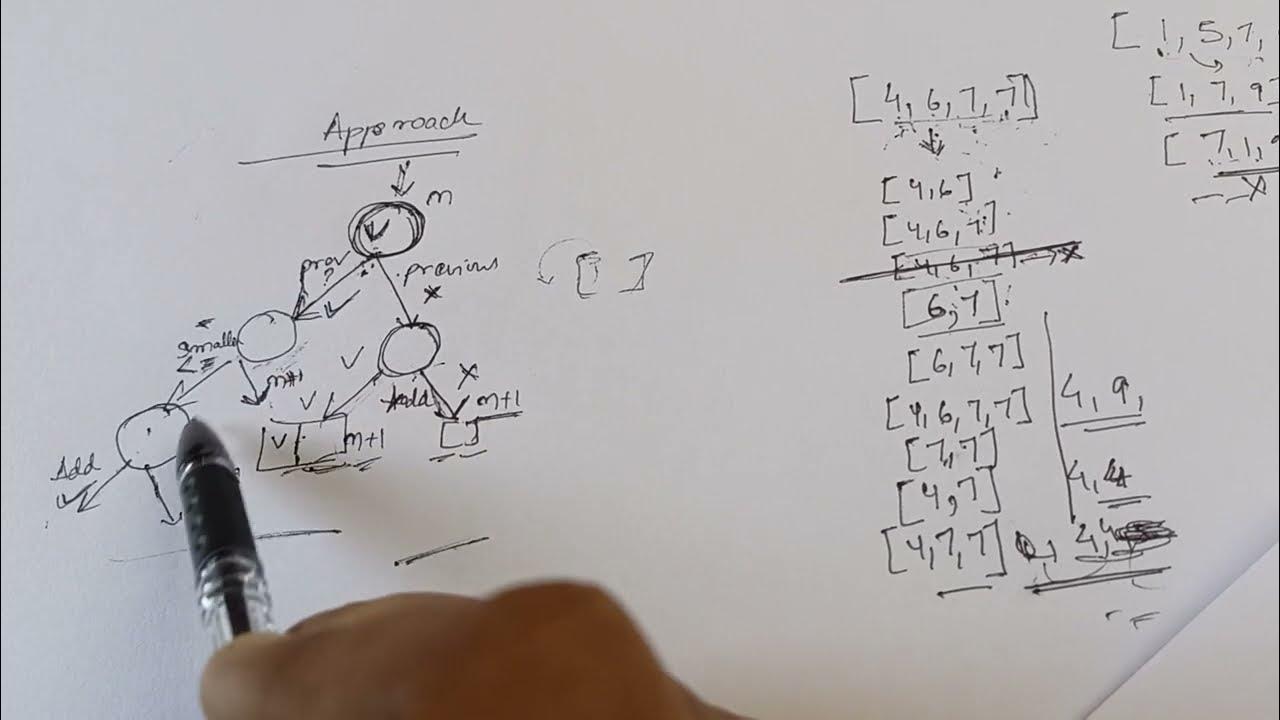 Approach
n
prev
?
previous
×
[ ]
smaller
<=
n+1
V
V
Add
×
n+1
V
n+1
Add
[4, 6, 7, 7]
[4,6]
[4,6,7]
[4,6,7] ×
[6,7]
[6,7,7]
[4,6,7,7]
[7,7]
[4,7]
[4,7,7]
4, 9,
4, 4
[1, 5, 7,
[1, 7, 9]
[7, 1, 9
×